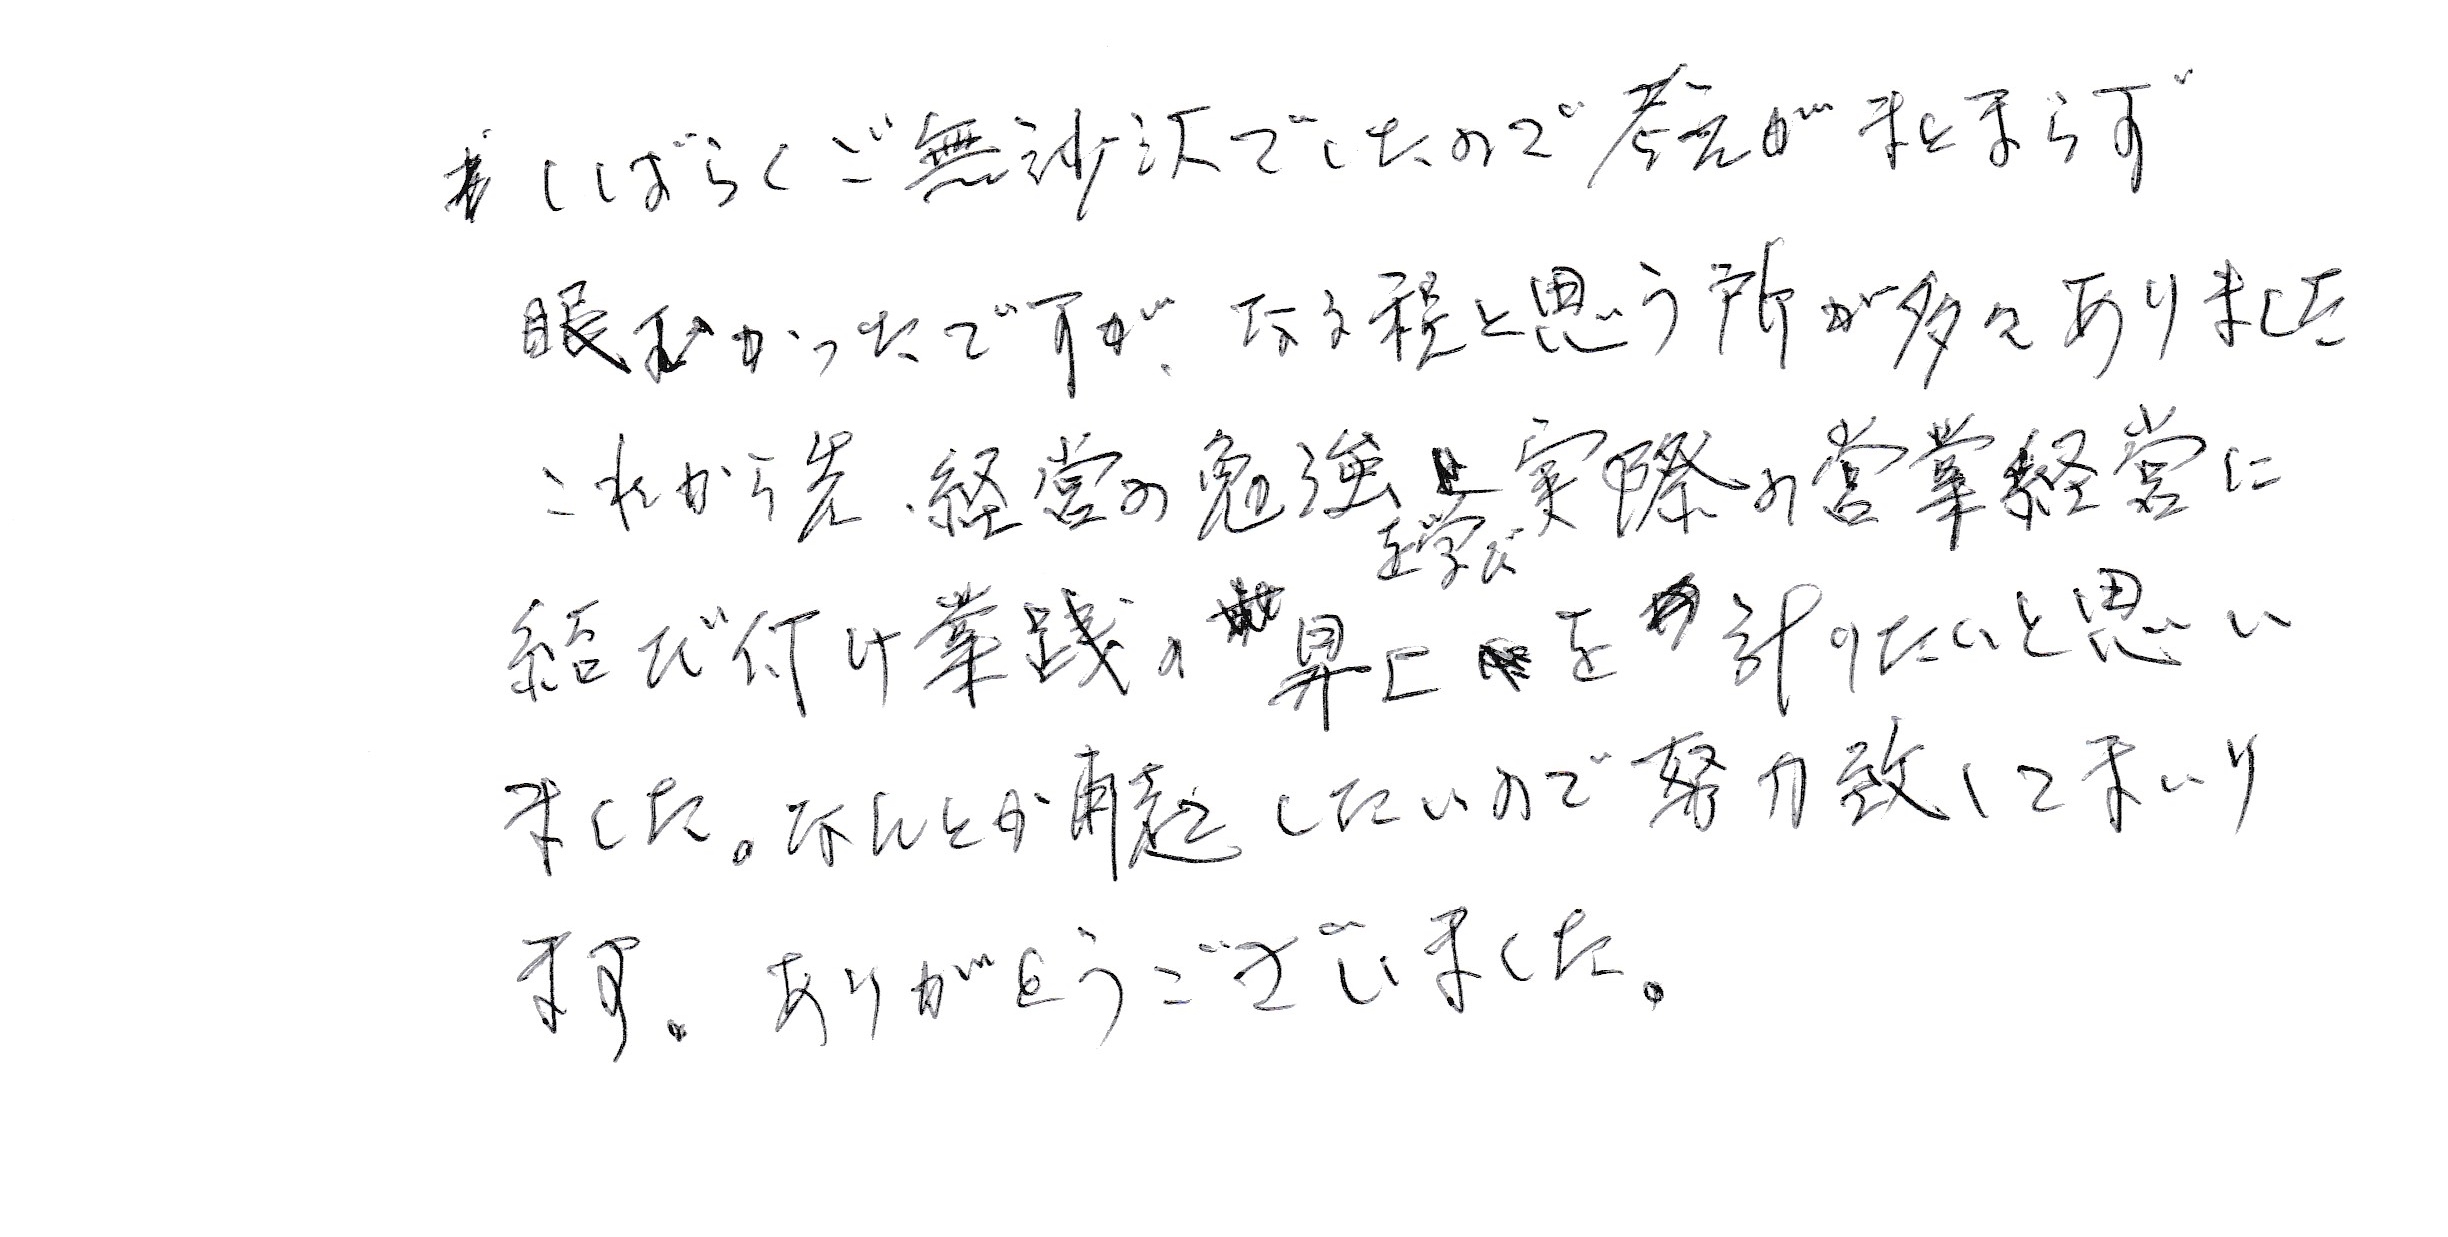 しばらくご無沙汰でしたので考えがまとまらず
眠むかったですが、なる程と思う所が多々ありました
これから先、経営の勉強を学び実際の営業経営に
結び付け業践の昇上を計りたいと思い
ました。なんとか再起したいので努力致してまいり
ます。ありがとうございました。